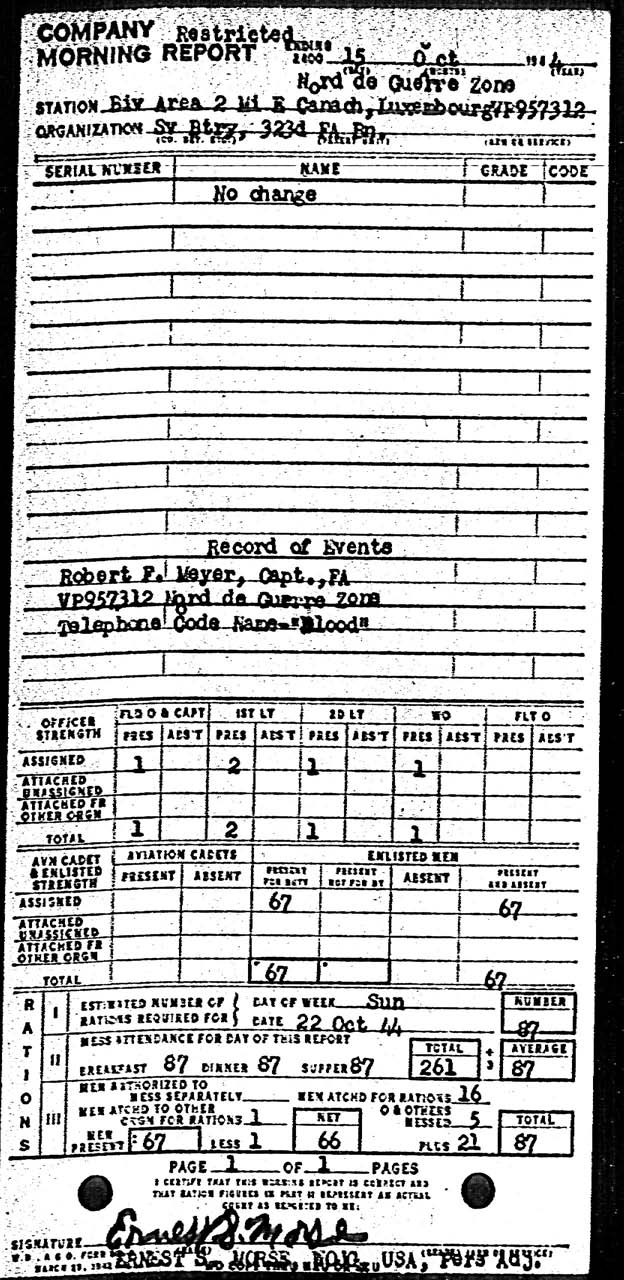 COMPANY Restricted
MORNING REPORT ENDING 2400 15 Oct 1944
(DAY) (MONTH) (YEAR)
Nord de Guerre Zone
STATION Biv Area 2 Mi E Canach, Luxembourg VP957312
ORGANIZATION Sv Btry, 323d FA Bn,
(CO. DET. ETC.) (PARENT UNIT) (ARM OR SERVICE)
SERIAL NUMBER NAME GRADE CODE
No change
Record of Events
Robert F. Meyer, Capt., FA
VP957312 Nord de Guerre Zone
Telephone Code Name-"Blood"
OFFICER STRENGTH FLD O & CAPT 1ST LT 2D LT WO FLT O
PRES ABS'T PRES ABS'T PRES ABS'T PRES ABS'T PRES ABS'T
ASSIGNED 1 2 1 1
ATTACHED UNASSIGNED
ATTACHED FR OTHER ORGN
TOTAL 1 2 1 1
AVN CADET & ENLISTED STRENGTH AVIATION CADETS ENLISTED MEN
PRESENT ABSENT PRESENT FOR DUTY PRESENT NOT FOR DY ABSENT PRESENT AND ABSENT
ASSIGNED 67 67
ATTACHED UNASSIGNED
ATTACHED FR OTHER ORGN
TOTAL 67 67
RATIONS
I ESTIMATED NUMBER OF RATIONS REQUIRED FOR { DAY OF WEEK Sun NUMBER
DATE 22 Oct 44 87
II MESS ATTENDANCE FOR DAY OF THIS REPORT
BREAKFAST 87 DINNER 87 SUPPER 87 TOTAL 261 ÷ 3 AVERAGE 87
III MEN AUTHORIZED TO MESS SEPARATELY MEN ATCHD FOR RATIONS 16
MEN ATCHD TO OTHER ORGN FOR RATIONS 1 NET O & OTHERS MESSED 5 TOTAL
MEN PRESENT = 67 LESS 1 66 PLUS 21 87
PAGE 1 OF 1 PAGES
I CERTIFY THAT THIS MORNING REPORT IS CORRECT AND
THAT RATION FIGURES IN PART II REPRESENT AN ACTUAL
COUNT AS REPORTED TO ME:
SIGNATURE Ernest S. Morse
W.D., A.G.O. FORM
MARCH 23, 1942 ERNEST S. MORSE, WOJG, USA, Pers Adj.